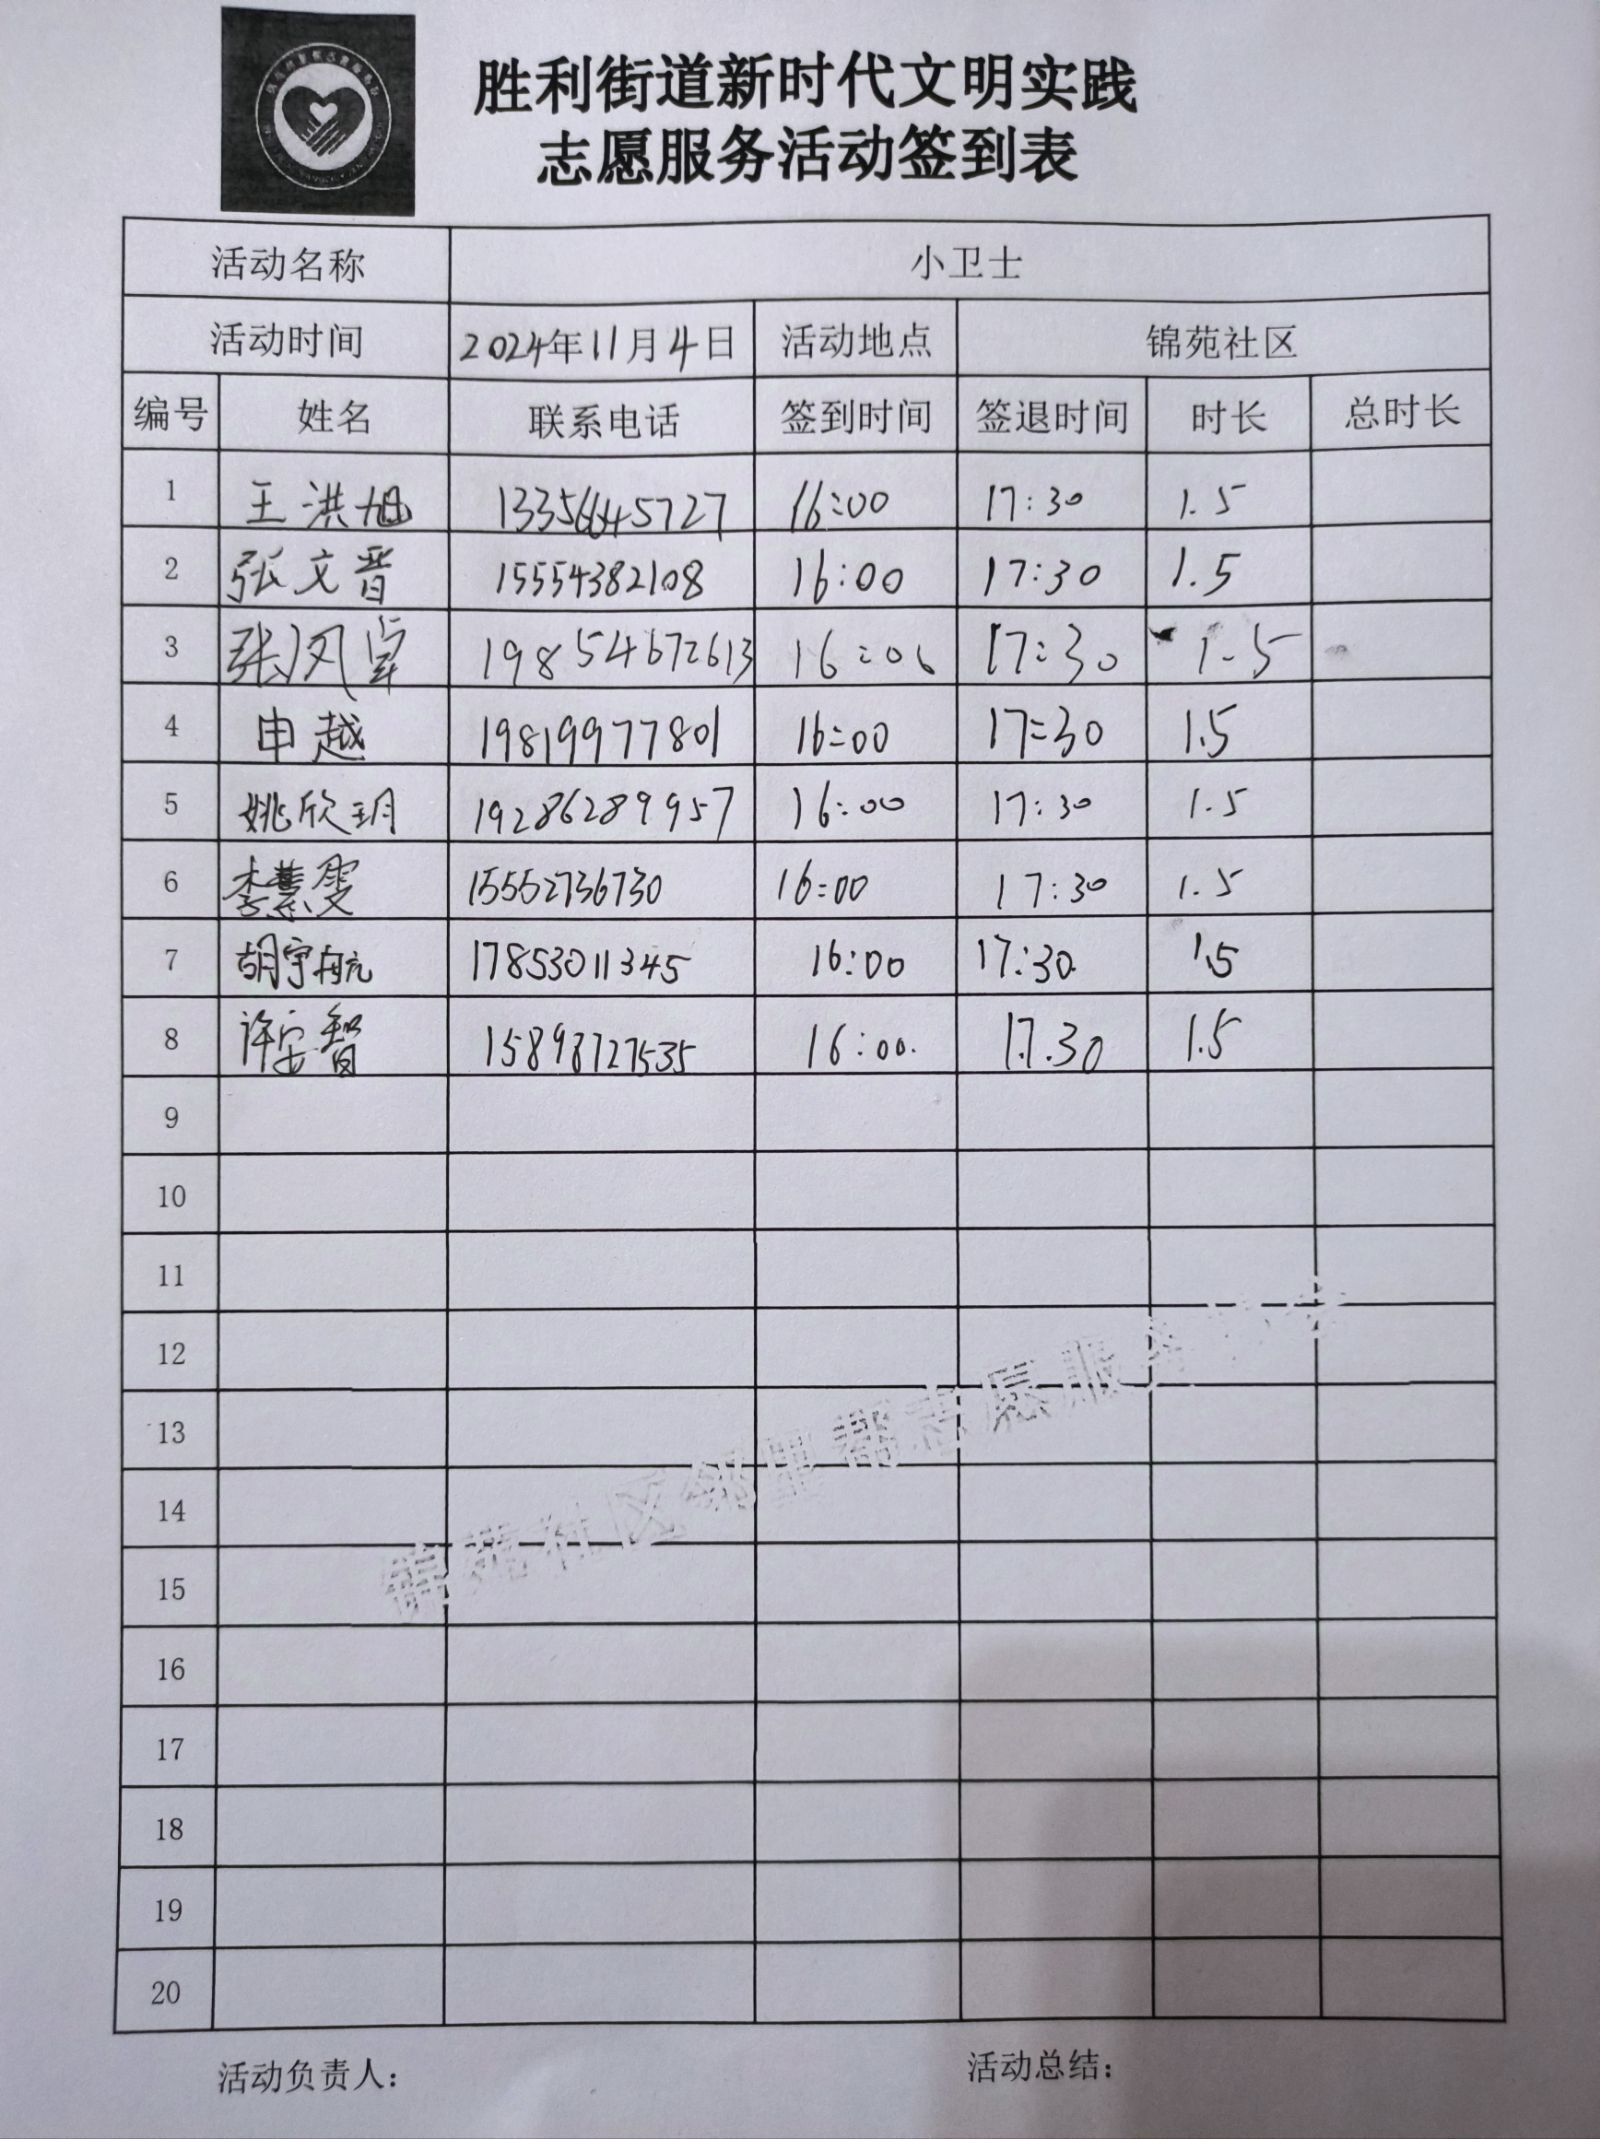 胜利街道新时代文明实践
志愿服务活动签到表
活动名称 小卫士
活动时间 2024年11月4日 活动地点 锦苑社区
编号 姓名 联系电话 签到时间 签退时间 时长 总时长
1 王洪旭 13356645727 16:00 17:30 1.5
2 张文晋 15554382108 16:00 17:30 1.5
3 张风卓 19854672613 16:00 17:30 1.5
4 申越 19819977801 16:00 17:30 1.5
5 姚欣玥 19286289957 16:00 17:30 1.5
6 李慧雯 15552736730 16:00 17:30 1.5
7 胡宇航 17853011345 16:00 17:30 1.5
8 许安智 15898727535 16:00 17.30 1.5
9
10
11
12
13
14
15
16
17
18
19
20
锦苑社区邻里帮志愿服务
活动负责人: 活动总结: